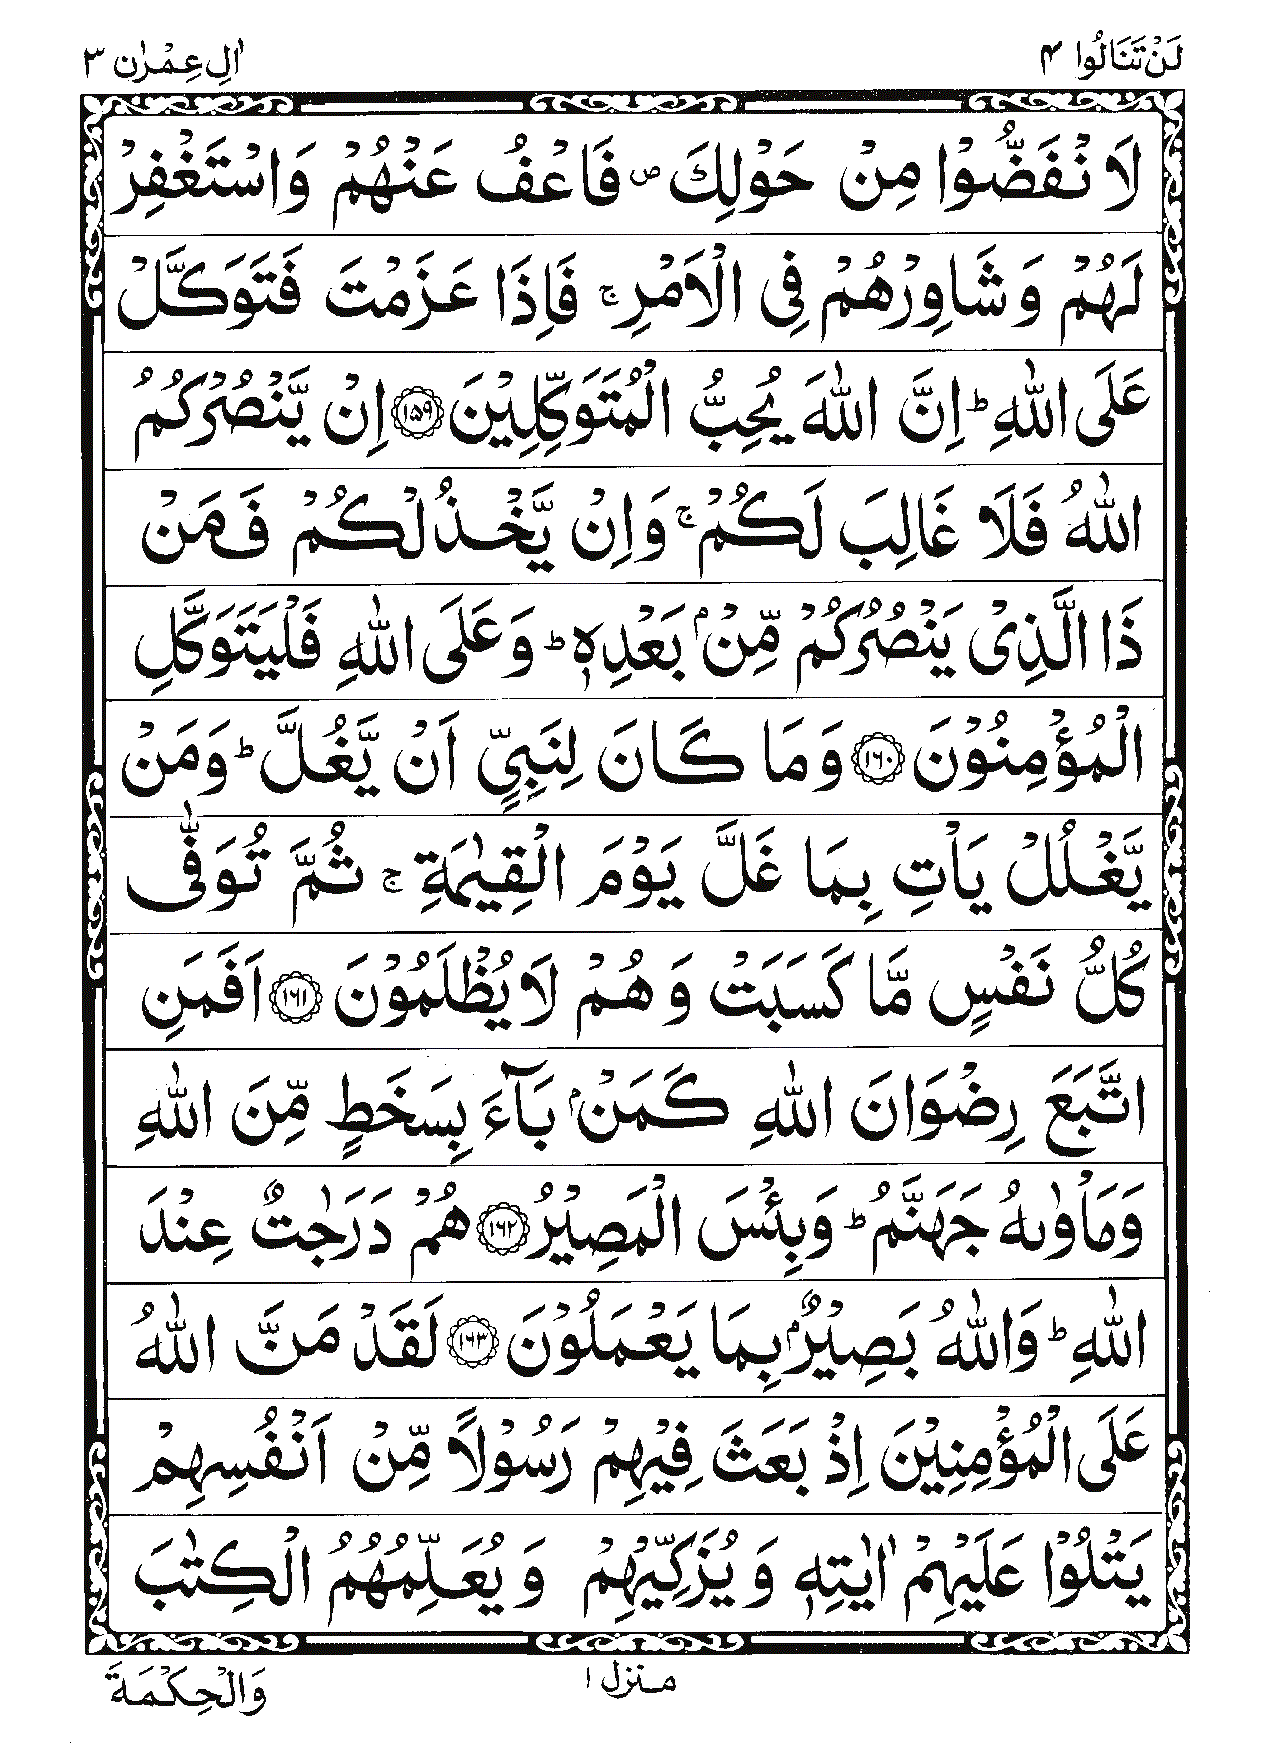 لَنْ تَنَالُوا ۴
اٰلِ عِمْرٰن ۳
لَا نْفَضُّوْا مِنْ حَوْلِكَ ۪ فَاعْفُ عَنْهُمْ وَاسْتَغْفِرْ
لَهُمْ وَ شَاوِرْهُمْ فِی الْاَمْرِ ۚ فَاِذَا عَزَمْتَ فَتَوَكَّلْ
عَلَی اللّٰهِ ؕ اِنَّ اللّٰهَ یُحِبُّ الْمُتَوَكِّلِیْنَ ﴿۱۵۹﴾ اِنْ یَّنْصُرْكُمُ
اللّٰهُ فَلَا غَالِبَ لَكُمْ ۚ وَاِنْ یَّخْذُلْكُمْ فَمَنْ
ذَا الَّذِیْ یَنْصُرُكُمْ مِّنْۢ بَعْدِهٖ ؕ وَعَلَی اللّٰهِ فَلْیَتَوَكَّلِ
الْمُؤْمِنُوْنَ ﴿۱۶۰﴾ وَمَا كَانَ لِنَبِیٍّ اَنْ یَّغُلَّ ؕ وَمَنْ
یَّغْلُلْ یَاْتِ بِمَا غَلَّ یَوْمَ الْقِیٰمَةِ ۚ ثُمَّ تُوَفّٰی
كُلُّ نَفْسٍ مَّا كَسَبَتْ وَ هُمْ لَا یُظْلَمُوْنَ ﴿۱۶۱﴾ اَفَمَنِ
اتَّبَعَ رِضْوَانَ اللّٰهِ كَمَنْۢ بَآءَ بِسَخَطٍ مِّنَ اللّٰهِ
وَمَاْوٰىهُ جَهَنَّمُ ؕ وَبِئْسَ الْمَصِیْرُ ﴿۱۶۲﴾ هُمْ دَرَجٰتٌ عِنْدَ
اللّٰهِ ؕ وَاللّٰهُ بَصِیْرٌۢ بِمَا یَعْمَلُوْنَ ﴿۱۶۳﴾ لَقَدْ مَنَّ اللّٰهُ
عَلَی الْمُؤْمِنِیْنَ اِذْ بَعَثَ فِیْهِمْ رَسُوْلًا مِّنْ اَنْفُسِهِمْ
یَتْلُوْا عَلَیْهِمْ اٰیٰتِهٖ وَ یُزَكِّیْهِمْ وَ یُعَلِّمُهُمُ الْكِتٰبَ
منزل ۱
وَالْحِكْمَةَ